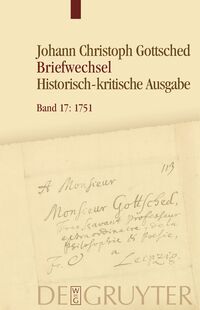 Johann Christoph Gottsched
Briefwechsel
Historisch-kritische Ausgabe
Band 17: 1751
A Monsieur
Monsieur Gottsched,
professeur
extraordinaire, de la
Philosophie & Poesie,
à Leipzig.
DE GRUYTER